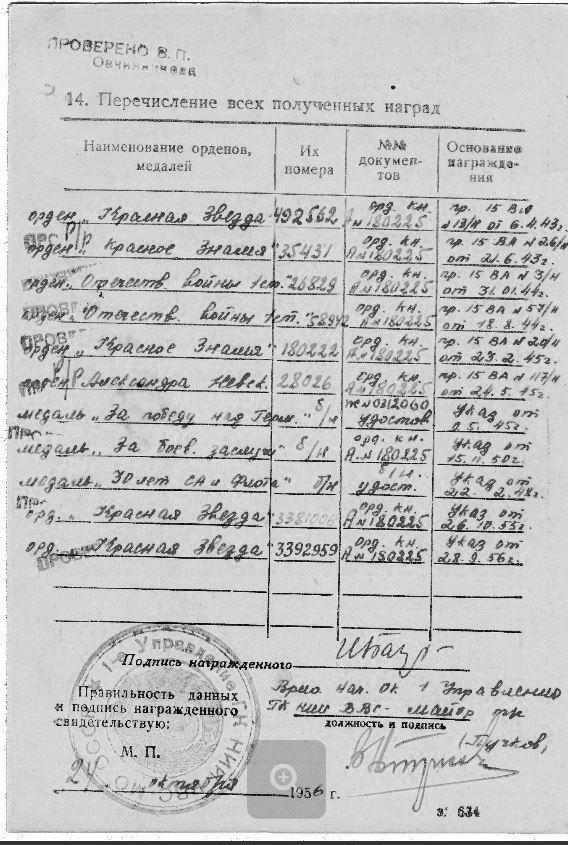 ПРОВЕРЕНО В. П.
Овчинничева
14. Перечисление всех полученных наград
Наименование орденов, медалей Их номера №№ документов Основание награждения
орден „Красная Звезда" 492562 орд. кн. А № 180225 пр. 15 ВА № 13/н от 6.4.43г.
орден „Красное Знамя" 35431 орд. кн. А № 180225 пр. 15 ВА № 26/н от 21.6.43г.
орден „Отечеств. войны 1 ст." 26829 орд. кн. А № 180225 пр. 15 ВА № 3/н от 31.01.44г.
орден „Отечеств. войны 1 ст." 58942 орд. кн. А № 180225 пр. 15 ВА № 57/н от 18.8.44г.
орден „Красное Знамя" 180222 орд. кн. А № 180225 пр. 15 ВА № 20/н от 23.2.45г.
орден Александра Невск. 28026 орд. кн. А № 180225 пр. 15 ВА № 117/н от 24.5.45г.
медаль „За победу над Герм." б/н № 0312060 удостов. Указ от 9.5.45г.
медаль „За боев. заслуги" б/н орд. кн. А № 180225 Указ от 15.11.50г.
медаль „30 лет СА и Флота" б/н б/н. удост. Указ от 22.2.48г.
орд. „Красная Звезда" 3381006 орд. кн. А № 180225 Указ от 26.10.55г.
орд. „Красная Звезда" 3392959 орд. кн. А № 180225 Указ от 28.9.56г.
Подпись награжденного
Правильность данных
и подпись награжденного
свидетельствую:
М. П.
Врио нач. ОК 1 Управления
ГК НИИ ВВС - майор
должность и подпись
(Пучков)
24 октября 1956 г.
з. 634